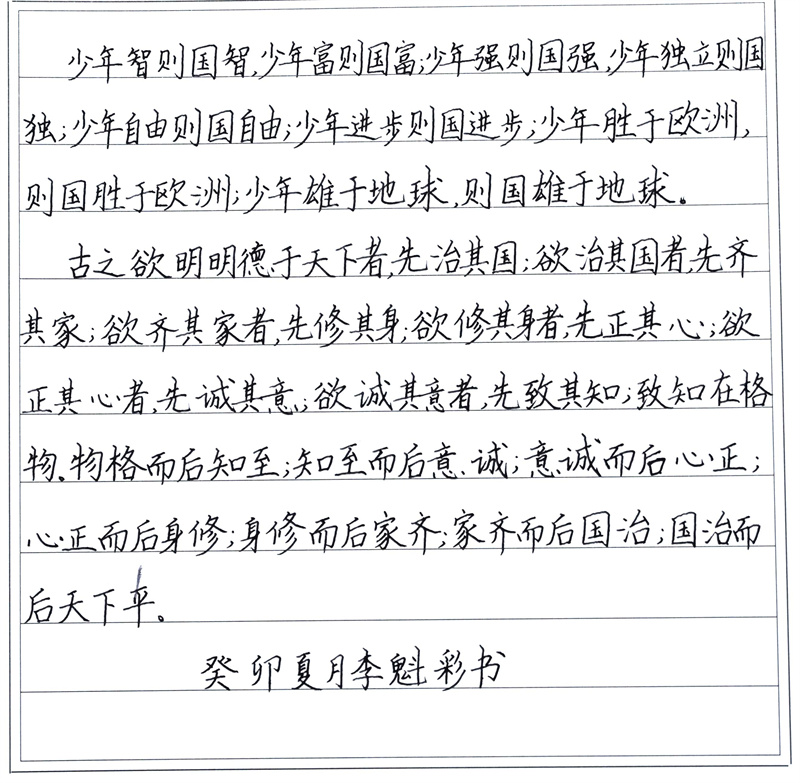 少年智则国智,少年富则国富;少年强则国强,少年独立则国
独;少年自由则国自由;少年进步则国进步;少年胜于欧洲,
则国胜于欧洲;少年雄于地球,则国雄于地球。
古之欲明明德于天下者,先治其国;欲治其国者,先齐
其家;欲齐其家者,先修其身;欲修其身者,先正其心;欲
正其心者,先诚其意;欲诚其意者,先致其知;致知在格
物。物格而后知至;知至而后意诚;意诚而后心正;
心正而后身修;身修而后家齐;家齐而后国治;国治而
后天下平。
癸卯夏月李魁彩书